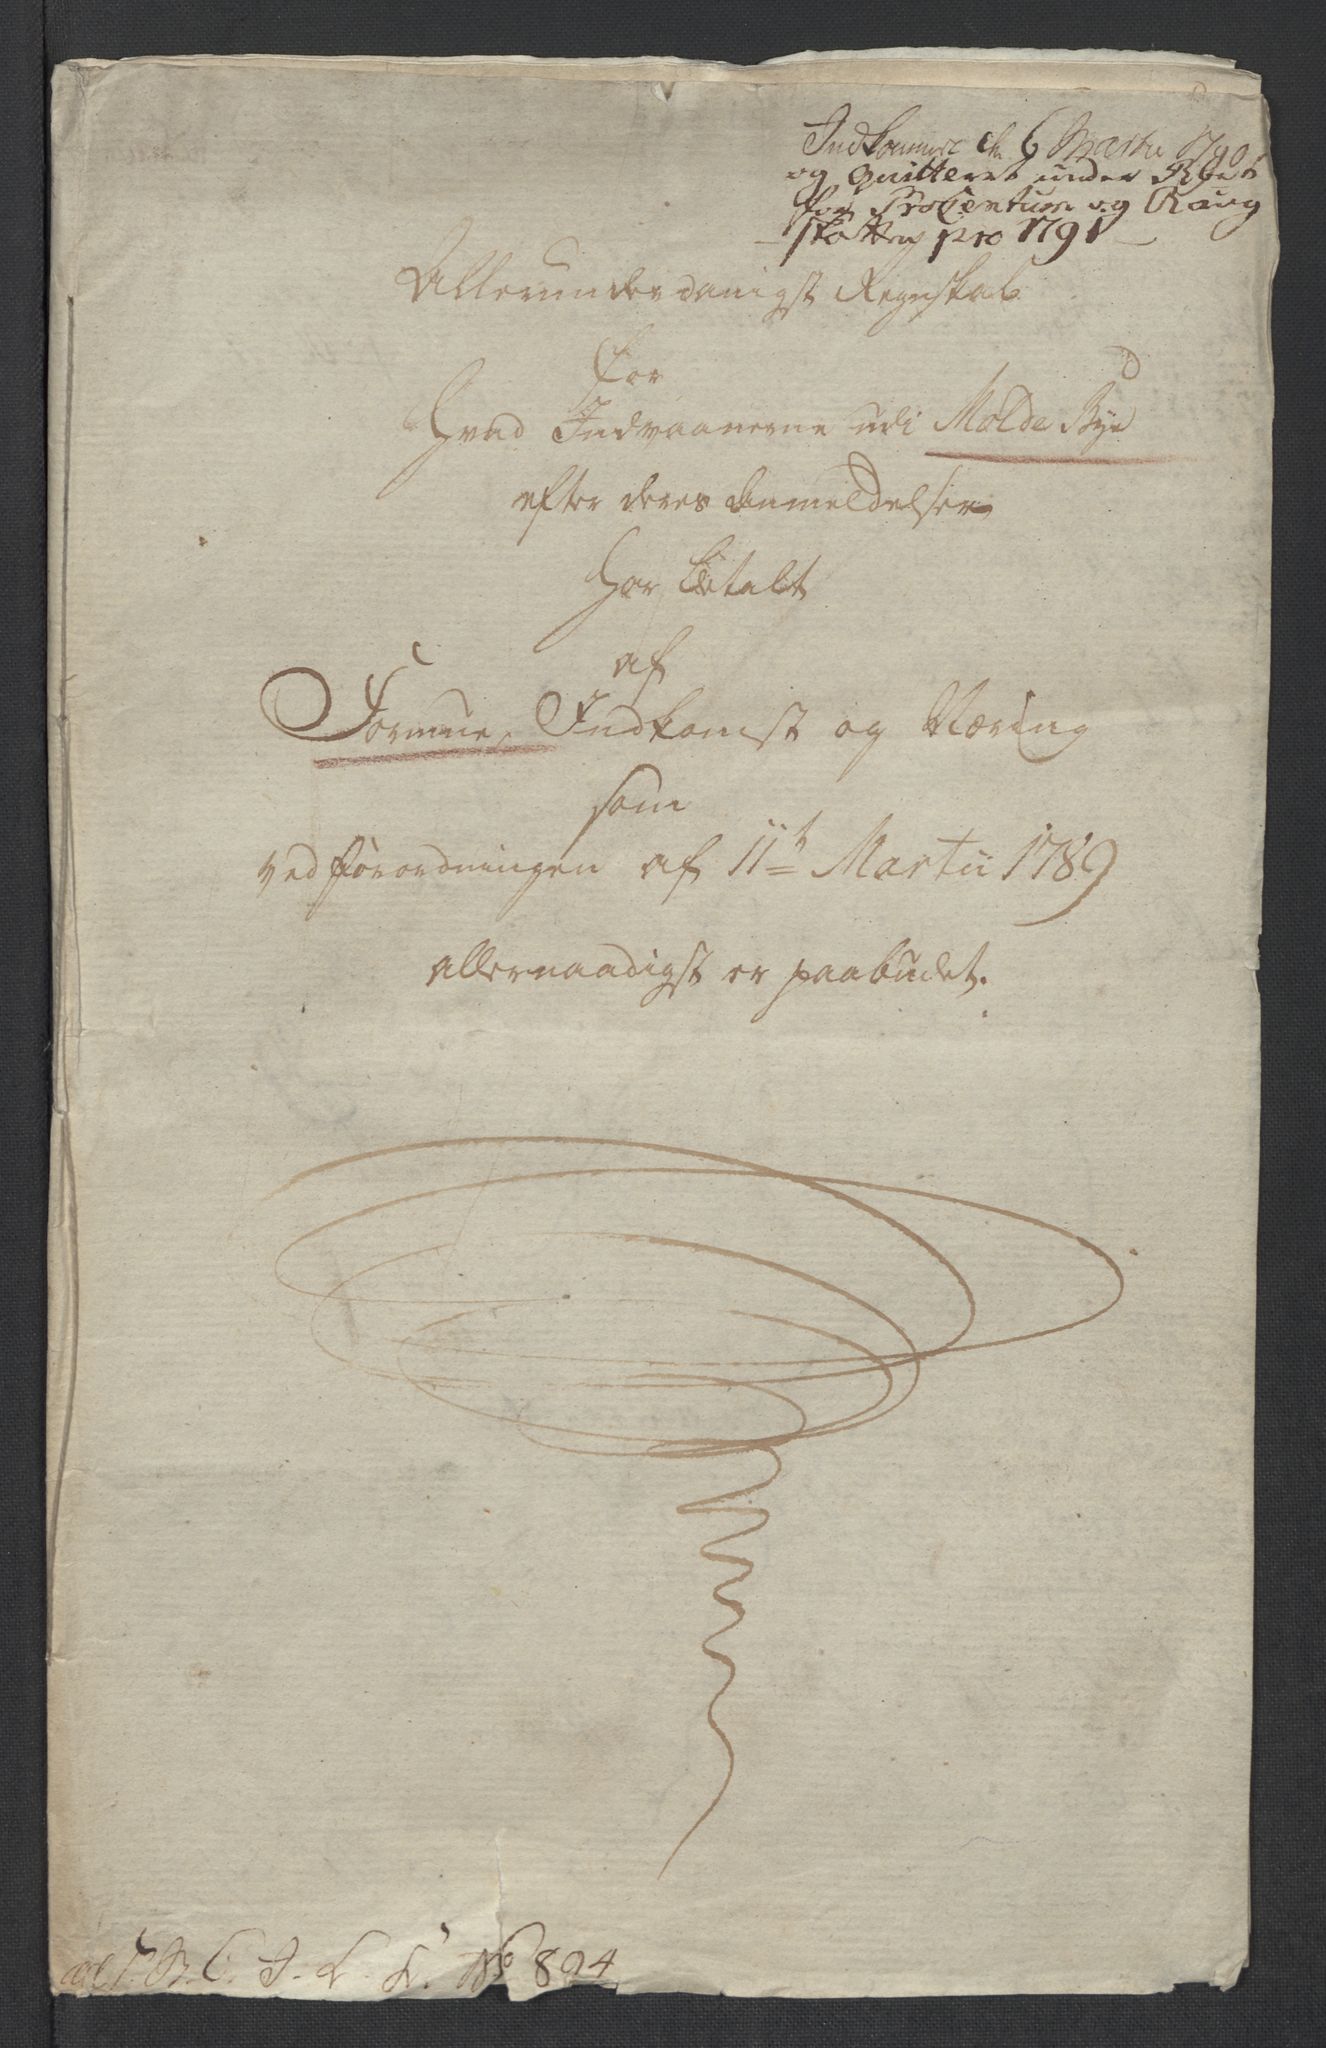 Indkommet d. 6 Martii 1790
og quitteret under Rgst
for Procentum og Rang
skatten pro 1791
Allerunderdanigst Regnskab
for
Hvad Indvaanerne udi Molde Bye
efter deres Anmeldelser
har betalt
af
Formue, Indkomst og Næring
som
ved Forordningen af 11te Martii 1789
allernaadigst er paabudet.
No 894